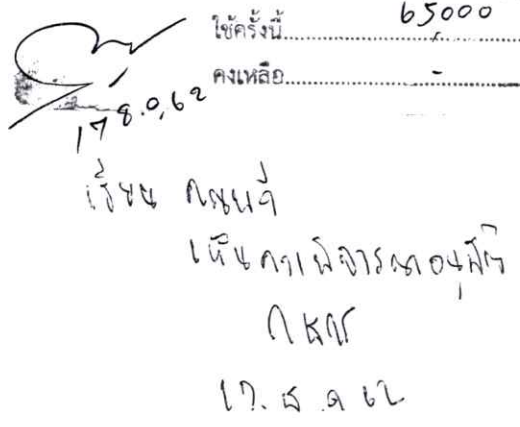 ใช้ครั้งนี้ 65,000
คงเหลือ -
17 ธ.ค. 62
เรียน คณบดี
เห็นควรพิจารณาอนุมัติ
17. ธ.ค 62